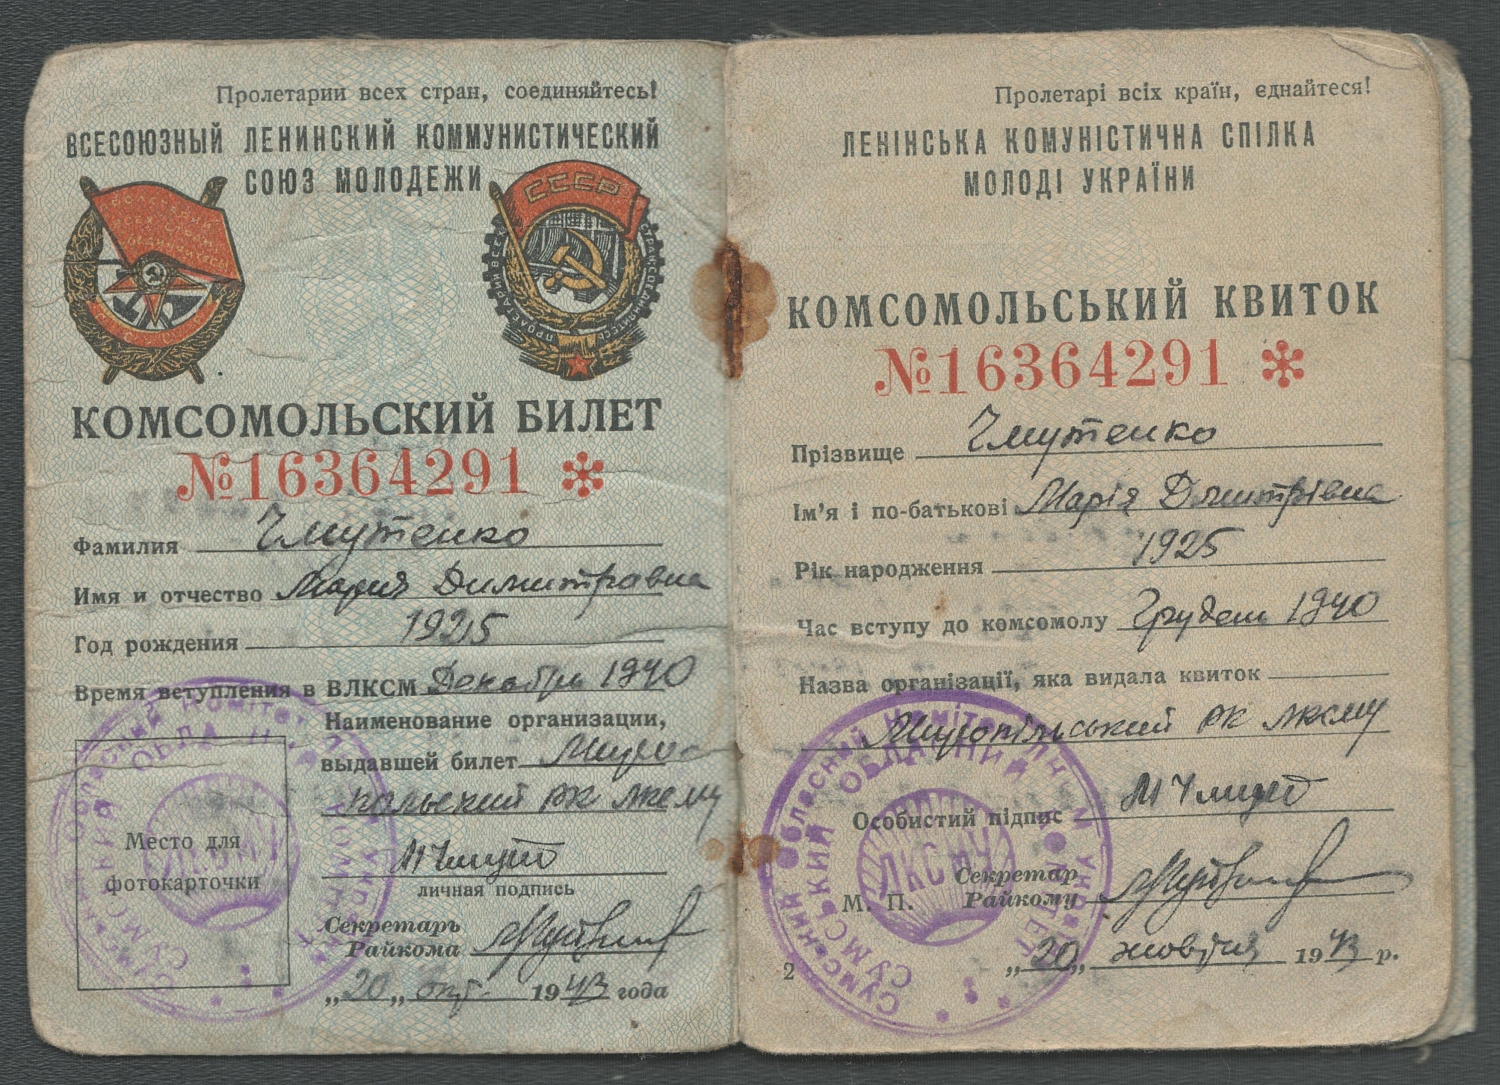 Пролетарии всех стран, соединяйтесь!
ВСЕСОЮЗНЫЙ ЛЕНИНСКИЙ КОММУНИСТИЧЕСКИЙ
СОЮЗ МОЛОДЕЖИ
СССР
КОМСОМОЛЬСКИЙ БИЛЕТ
№16364291 *
Фамилия Чмутенко
Имя и отчество Мария Димитровна
Год рождения 1925
Время вступления в ВЛКСМ Декабрь 1940
Наименование организации,
выдавшей билет Миро
польский РК ЛКСМУ
Место для
фотокарточки
личная подпись
Секретарь
Райкома
„20„ окт. 1943 года
Пролетарі всіх країн, єднайтеся!
ЛЕНІНСЬКА КОМУНІСТИЧНА СПІЛКА
МОЛОДІ УКРАЇНИ
КОМСОМОЛЬСЬКИЙ КВИТОК
№16364291 *
Прізвище Чмутенко
Ім'я і по-батькові Марія Дмитрівна
Рік народження 1925
Час вступу до комсомолу Грудень 1940
Назва організації, яка видала квиток
Миропільський РК ЛКСМУ
Особистий підпис
М. П.
Секретар
Райкому
„20„ жовтня 1943 р.
2
Сумський Обласний Комітет ЛКСМ України
СУМСЬКИЙ ОБЛАСНИЙ КОМІТЕТ
ЛКСМУ